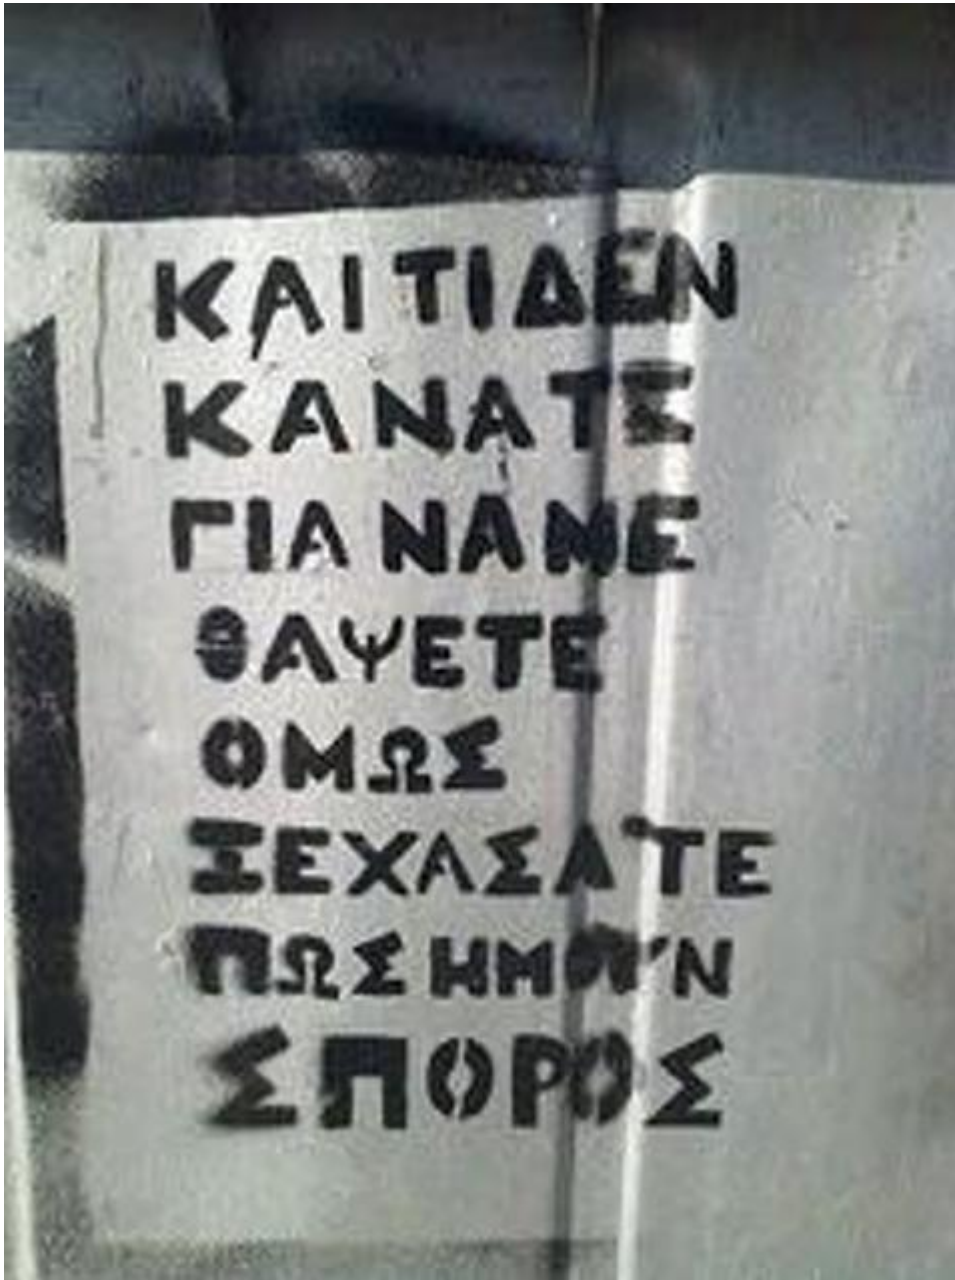 ΚΑΙ ΤΙ ΔΕΝ
ΚΑΝΑΤΕ
ΓΙΑ ΝΑ ΜΕ
ΘΑΨΕΤΕ
ΟΜΩΣ
ΞΕΧΑΣΑΤΕ
ΠΩΣ ΗΜΟΥΝ
ΣΠΟΡΟΣ